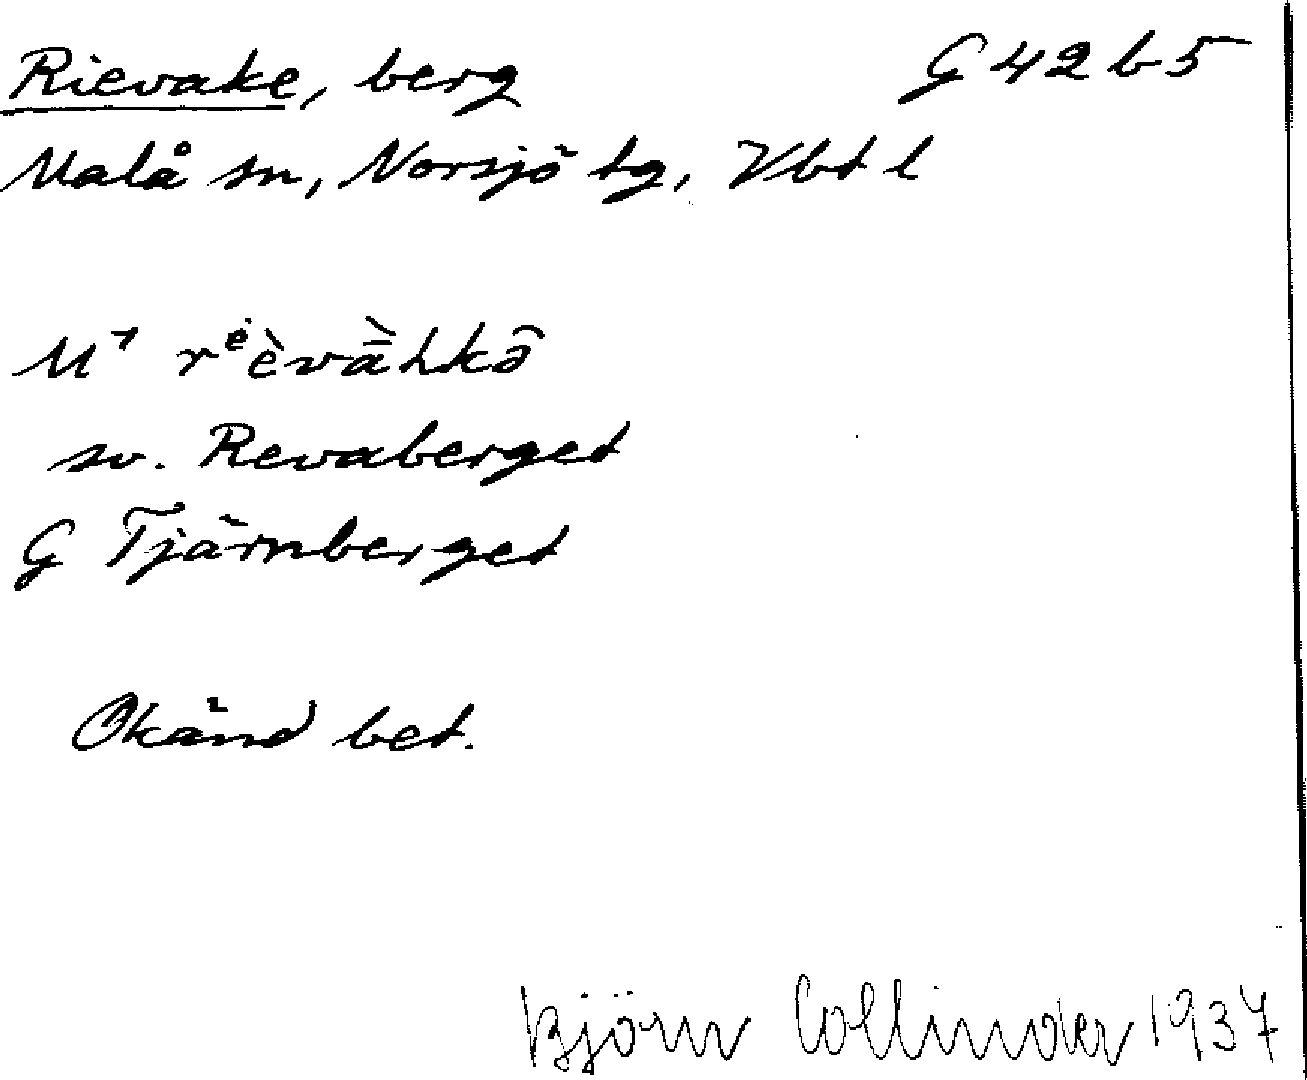 Rievake, berg G 42 b 5
Malå sn, Norsjö tg, Vbt l
sv. Revaberget
G Tjärnberget
Okänd bet.
Björn Collinder 1937